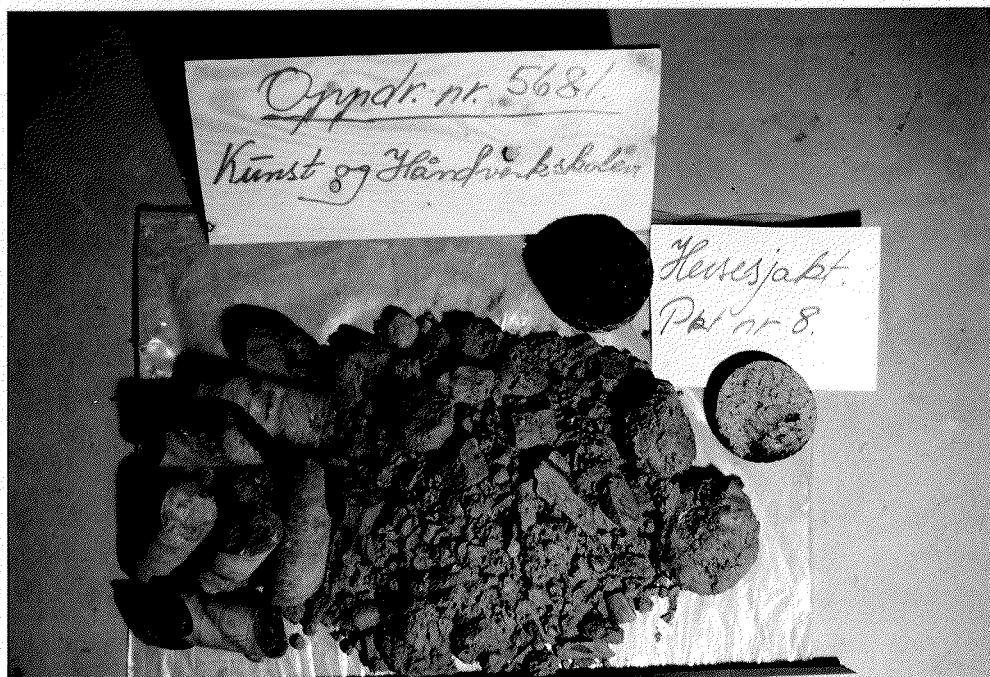 Oppdr. nr. 5681.
Kunst og Håndverksskolen
Heisesjakt.
Pkt nr 8.